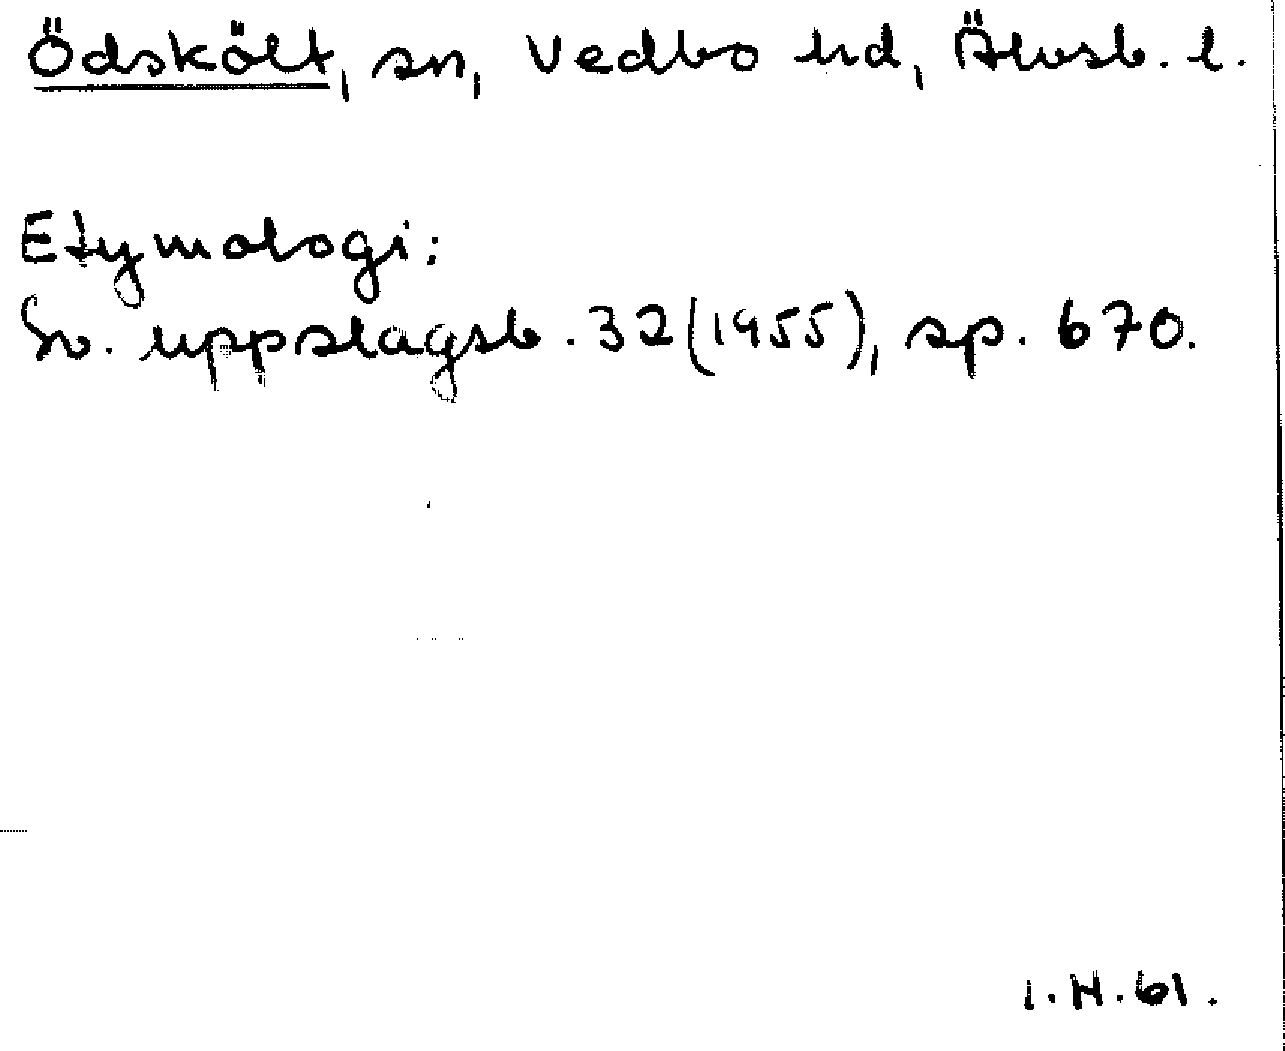 Ödskölt, sn, Vedbo hd, Älvsb. l.
Etymologi:
Sv. uppslagsb. 32 (1955), sp. 670.
I.H.61.